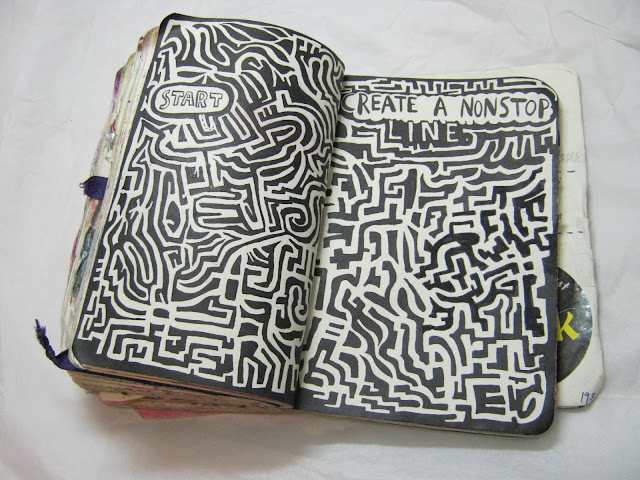 START
CREATE A NONSTOP
LINE